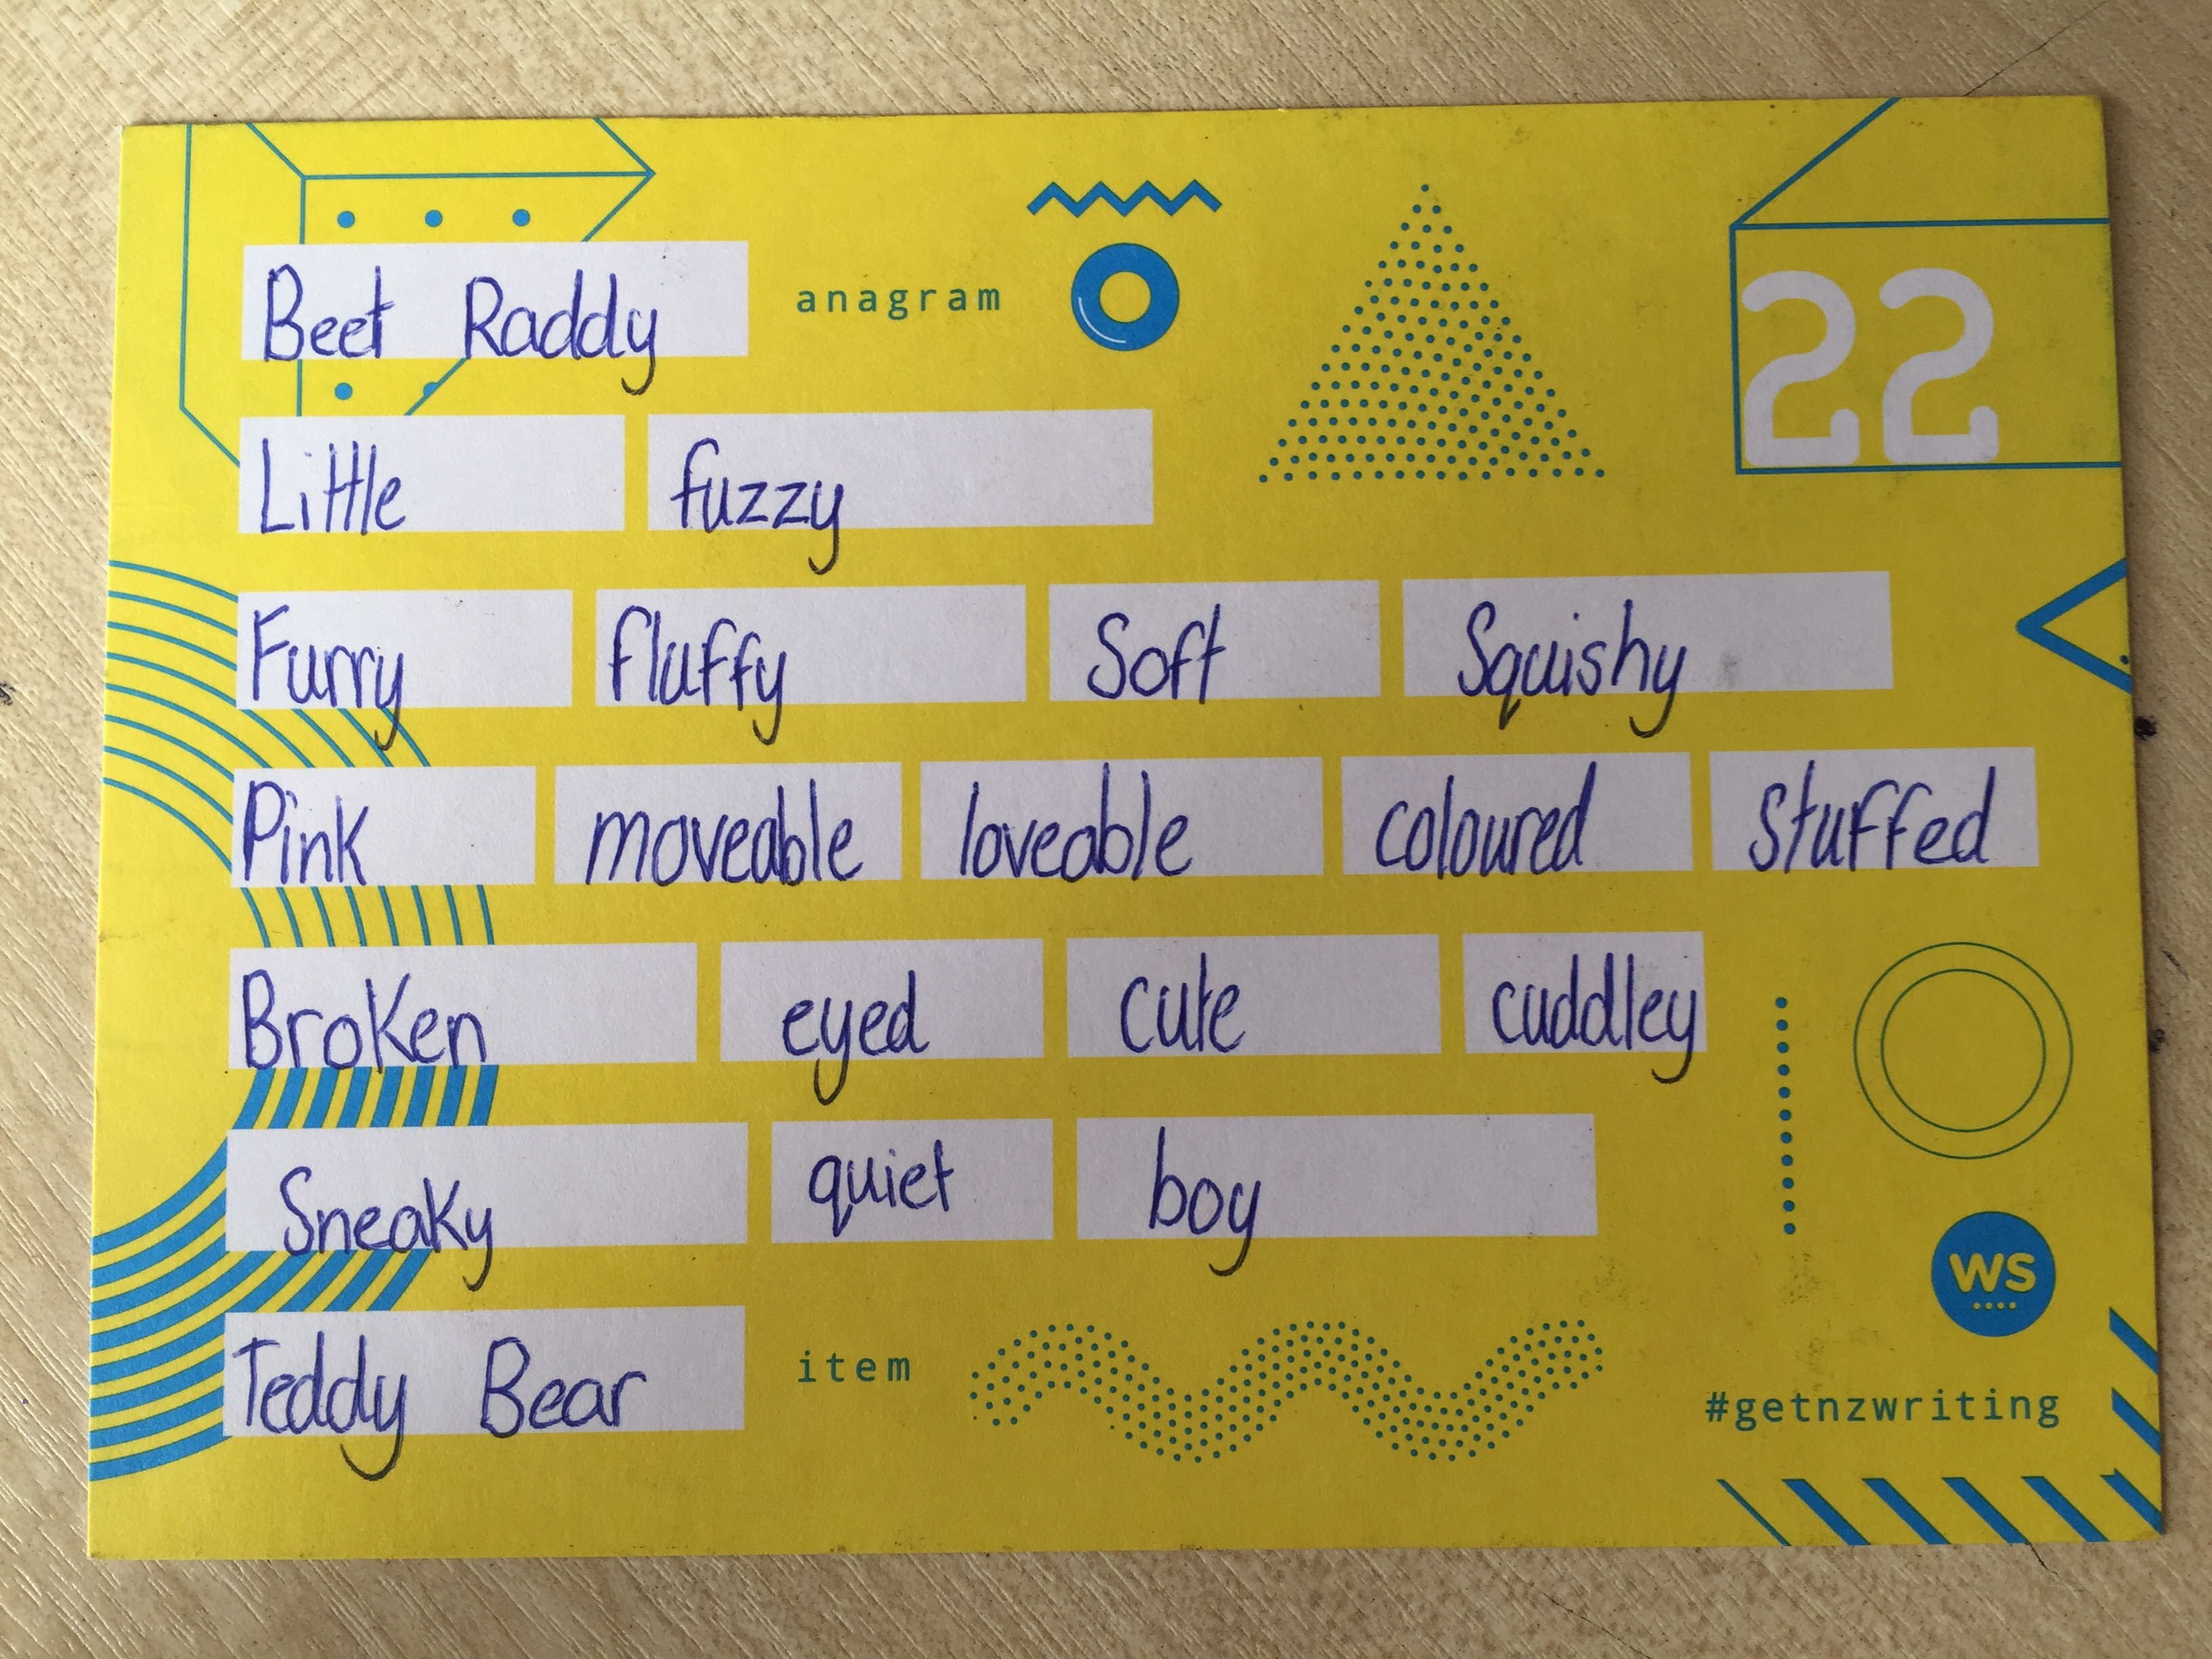 Beet Raddy anagram
22
Little fuzzy
Furry fluffy Soft Squishy
Pink moveable loveable coloured stuffed
Broken eyed cute cuddley
Sneaky quiet boy
WS
Teddy Bear item
#getnzwriting